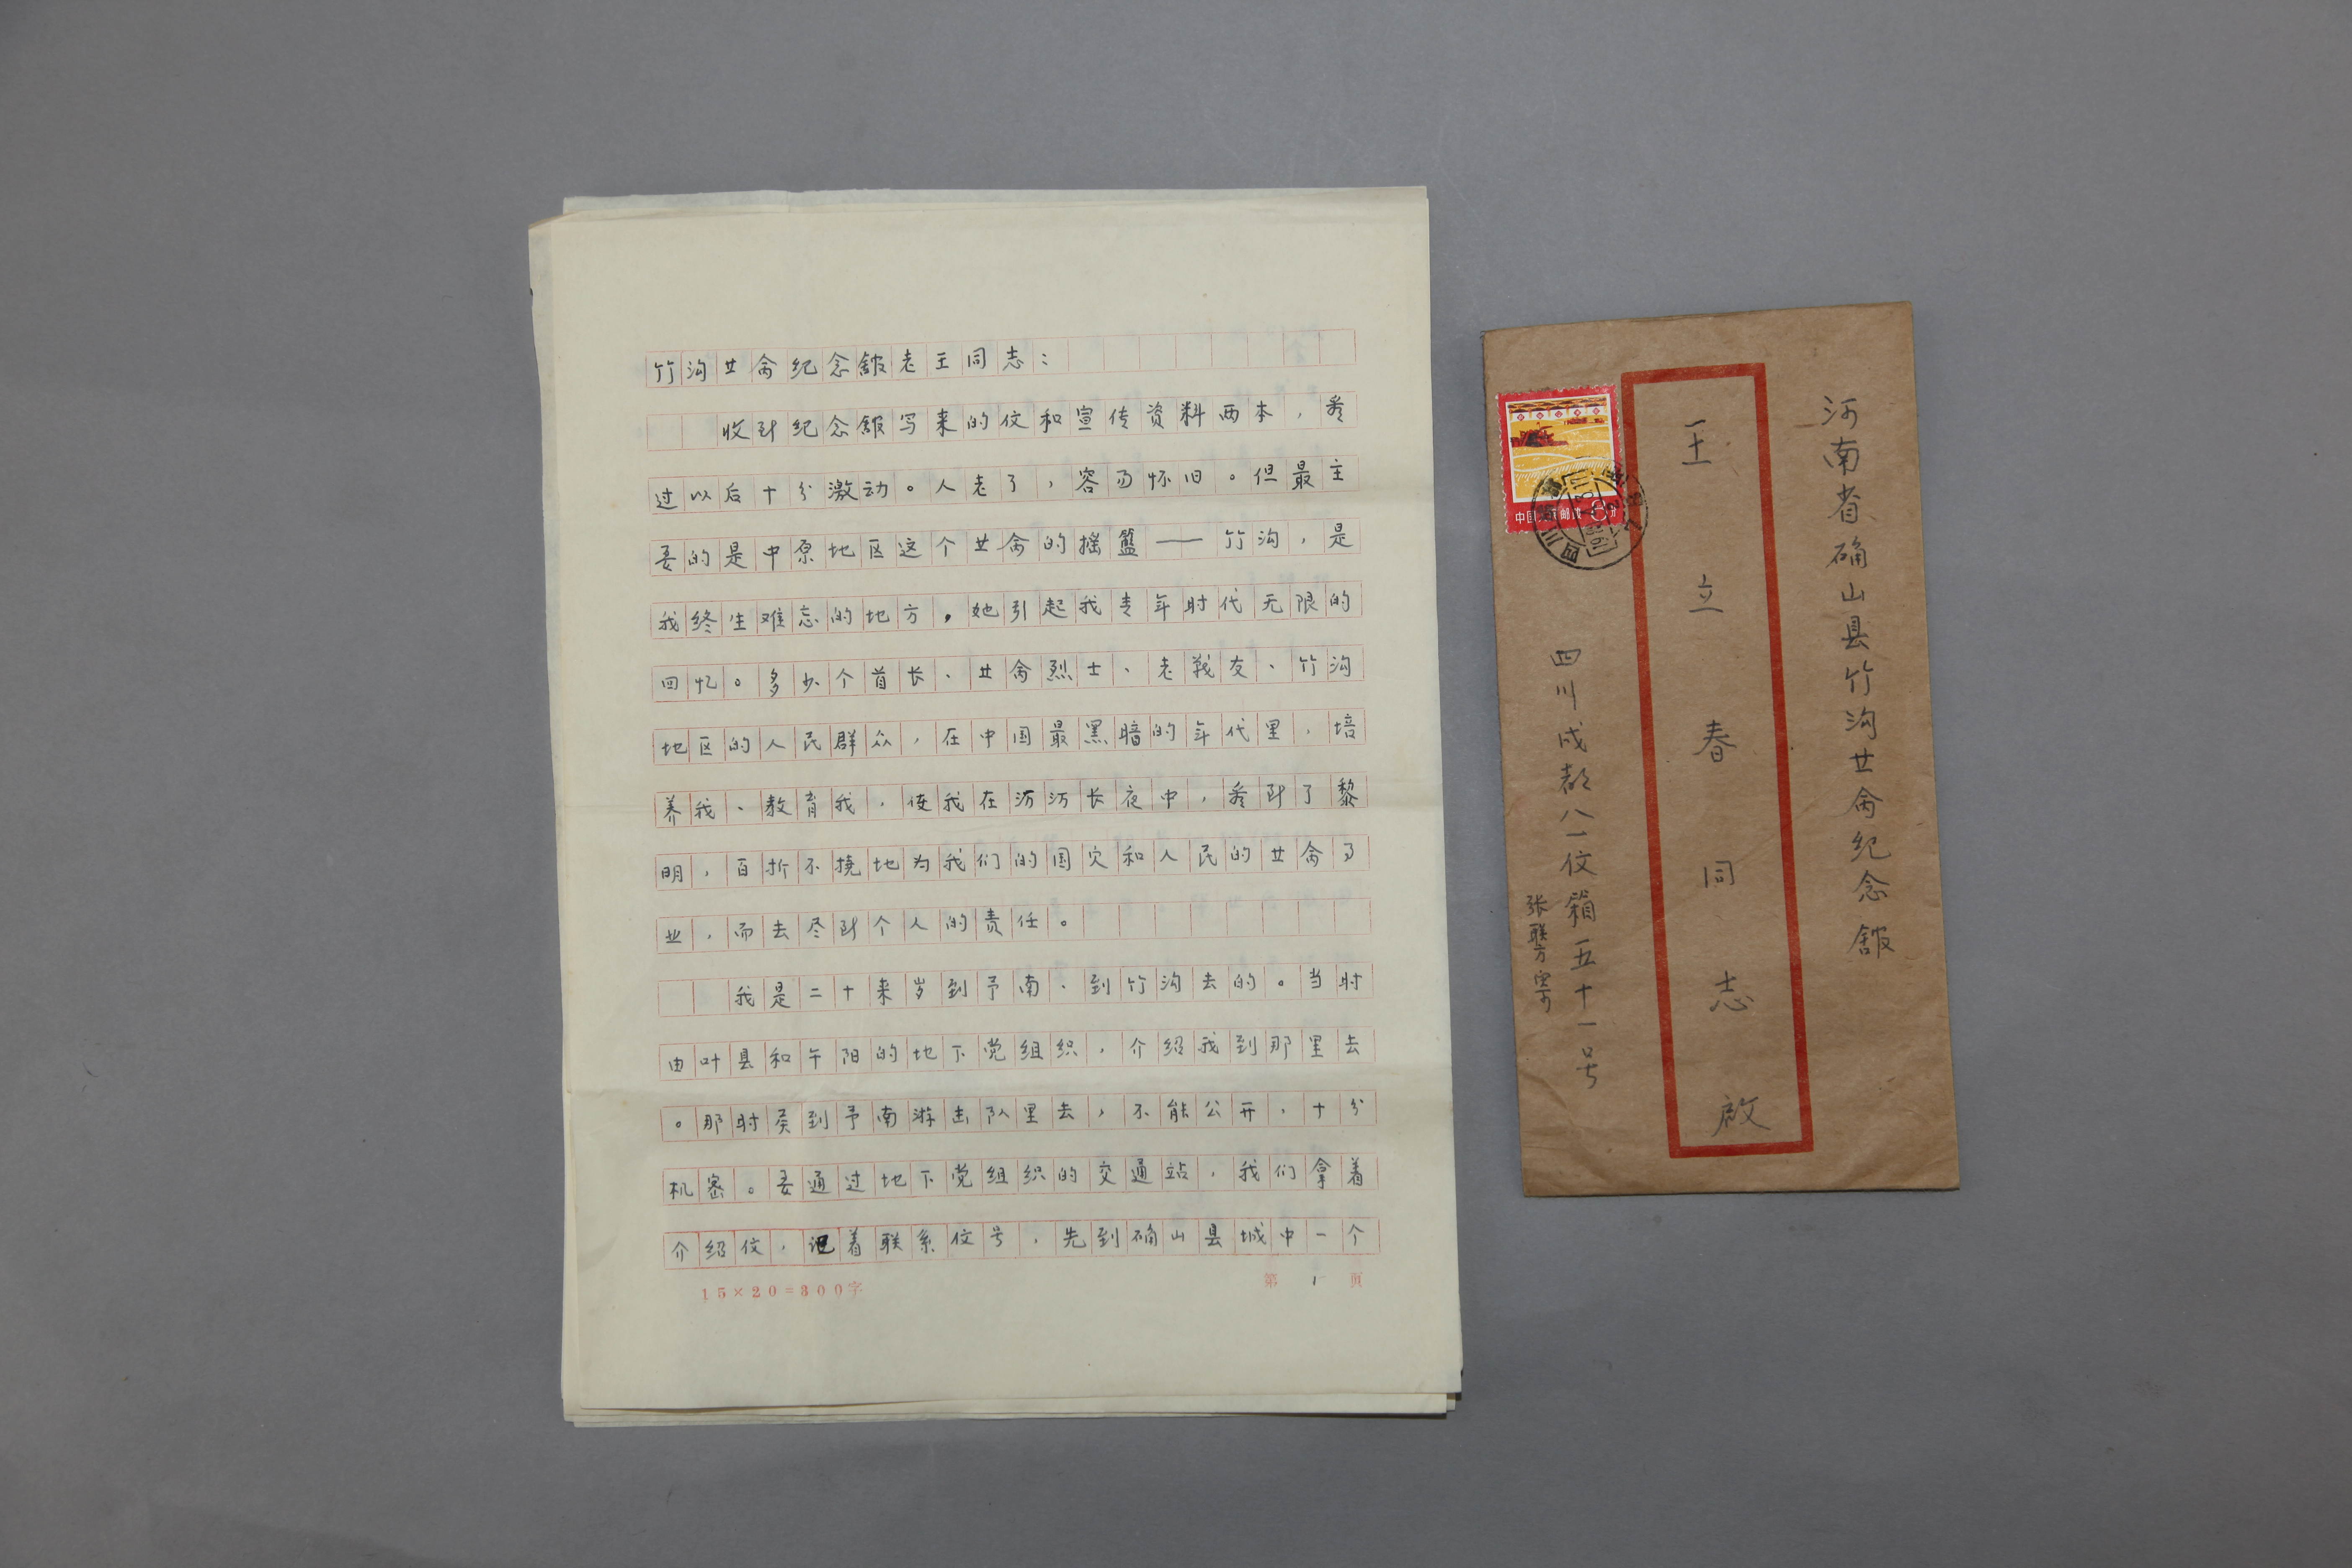 竹沟廿侖纪念舘老王同志：
收到纪念舘写来的伩和宣传资料两本，看
过以后十分激动。人老了，容易怀旧。但最主
要的是中原地区这个廿侖的摇籃——竹沟，是
我终生难忘的地方，她引起我青年时代无限的
回忆。多少个首长、廿侖烈士、老战友、竹沟
地区的人民群众，在中国最黑暗的年代里，培
养我、教育我，使我在沥沥长夜中，看到了黎
明，百折不挠地为我们的国家和人民的廿侖事
业，而去尽到个人的责任。
我是二十来岁到予南、到竹沟去的。当时
由叶县和午阳的地下党组织，介绍我到那里去
。那时候到予南游击队里去，不能公开，十分
机密。要通过地下党组织的交通站，我们拿着
介绍伩，记着联系伩号，先到确山县城中一个
15×20=300字
第 1 页
河南省确山县竹沟廿侖纪念舘
王立春同志 啟
四川成都八一伩箱五十一号
张联方寄
中国人民邮政 8分
四川 成都